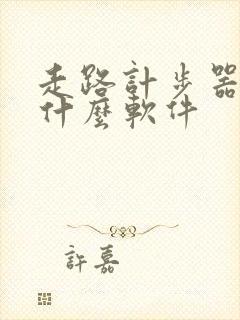 走路計步器
什麼軟件
許嘉